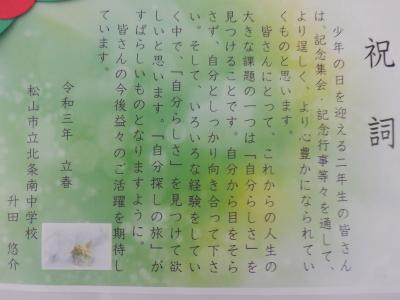 祝詞
少年の日を迎える二年生の皆さん
は、記念集会・記念行事等々を通して、
より逞しく、より心豊かになられてい
くものと思います。
皆さんにとって、これからの人生の
大きな課題の一つは「自分らしさ」を
見つけることです。自分から目をそら
さず、自分としっかり向き合って下さ
い。そして、いろいろな経験をしてい
く中で、「自分らしさ」を見つけて欲
しいと思います。「自分探しの旅」が
すばらしいものとなりますように。
皆さんの今後益々のご活躍を期待し
ています。
令和三年　立春
松山市立北条南中学校
升田　悠介